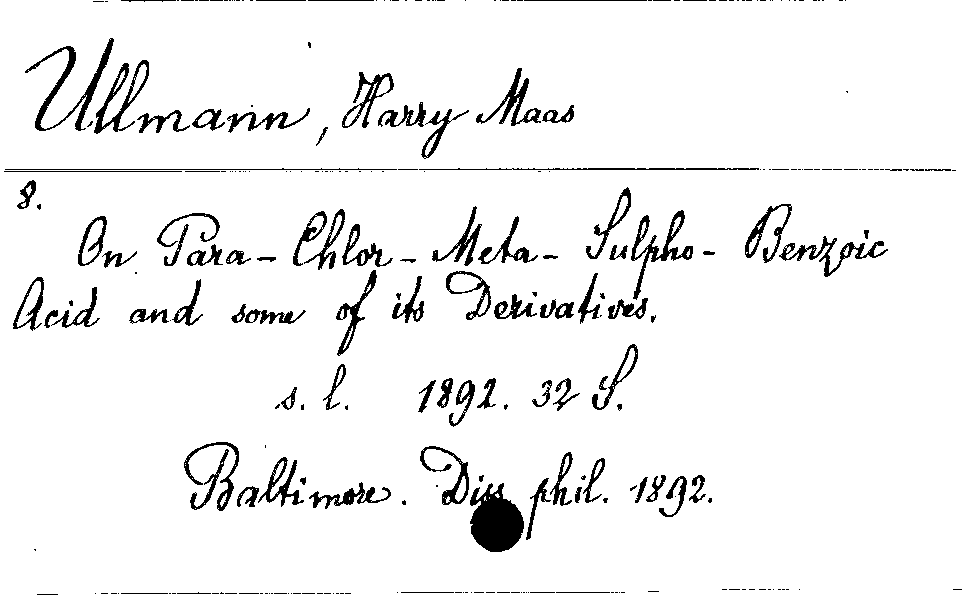 Ullmann, Harry Maas
8.
On Para-Chlor-Meta-Sulpho-Benzoic
Acid and some of its Derivatives.
s. l. 1892. 32 S.
Baltimore. Diss. phil. 1892.